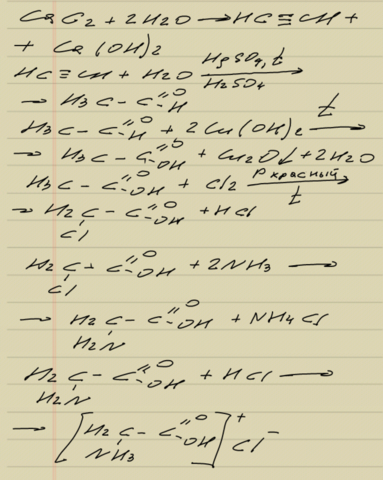 CaC2 + 2H2O → HC≡CH +
+ Ca(OH)2
HC≡CH + H2O HgSO4, t H2SO4 →
→ H3C – C =O –H
H3C – C =O –H + 2Cu(OH)2 t →
→ H3C – C =O –OH + Cu2O↓ + 2H2O
H3C – C =O –OH + Cl2 P красный t →
→ H2C – C =O –OH + HCl
Cl
H2C – C =O –OH + 2NH3 →
Cl
→ H2C – C =O –OH + NH4Cl
H2N
H2C – C =O –OH + HCl →
H2N
→ [H2C – C =O –OH]+ Cl–
NH3